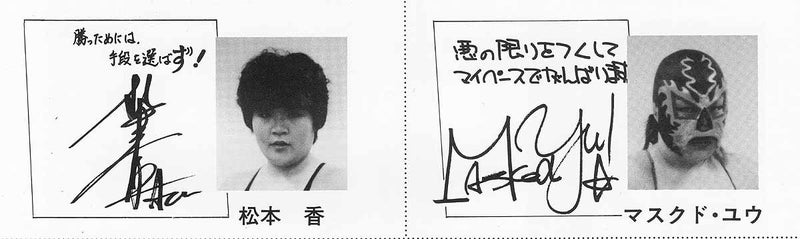 勝つためには、
手段を選ばず!
松本 香
悪の限りをつくして
マイペースでがんばります
Masked Yu!
マスクド・ユウ